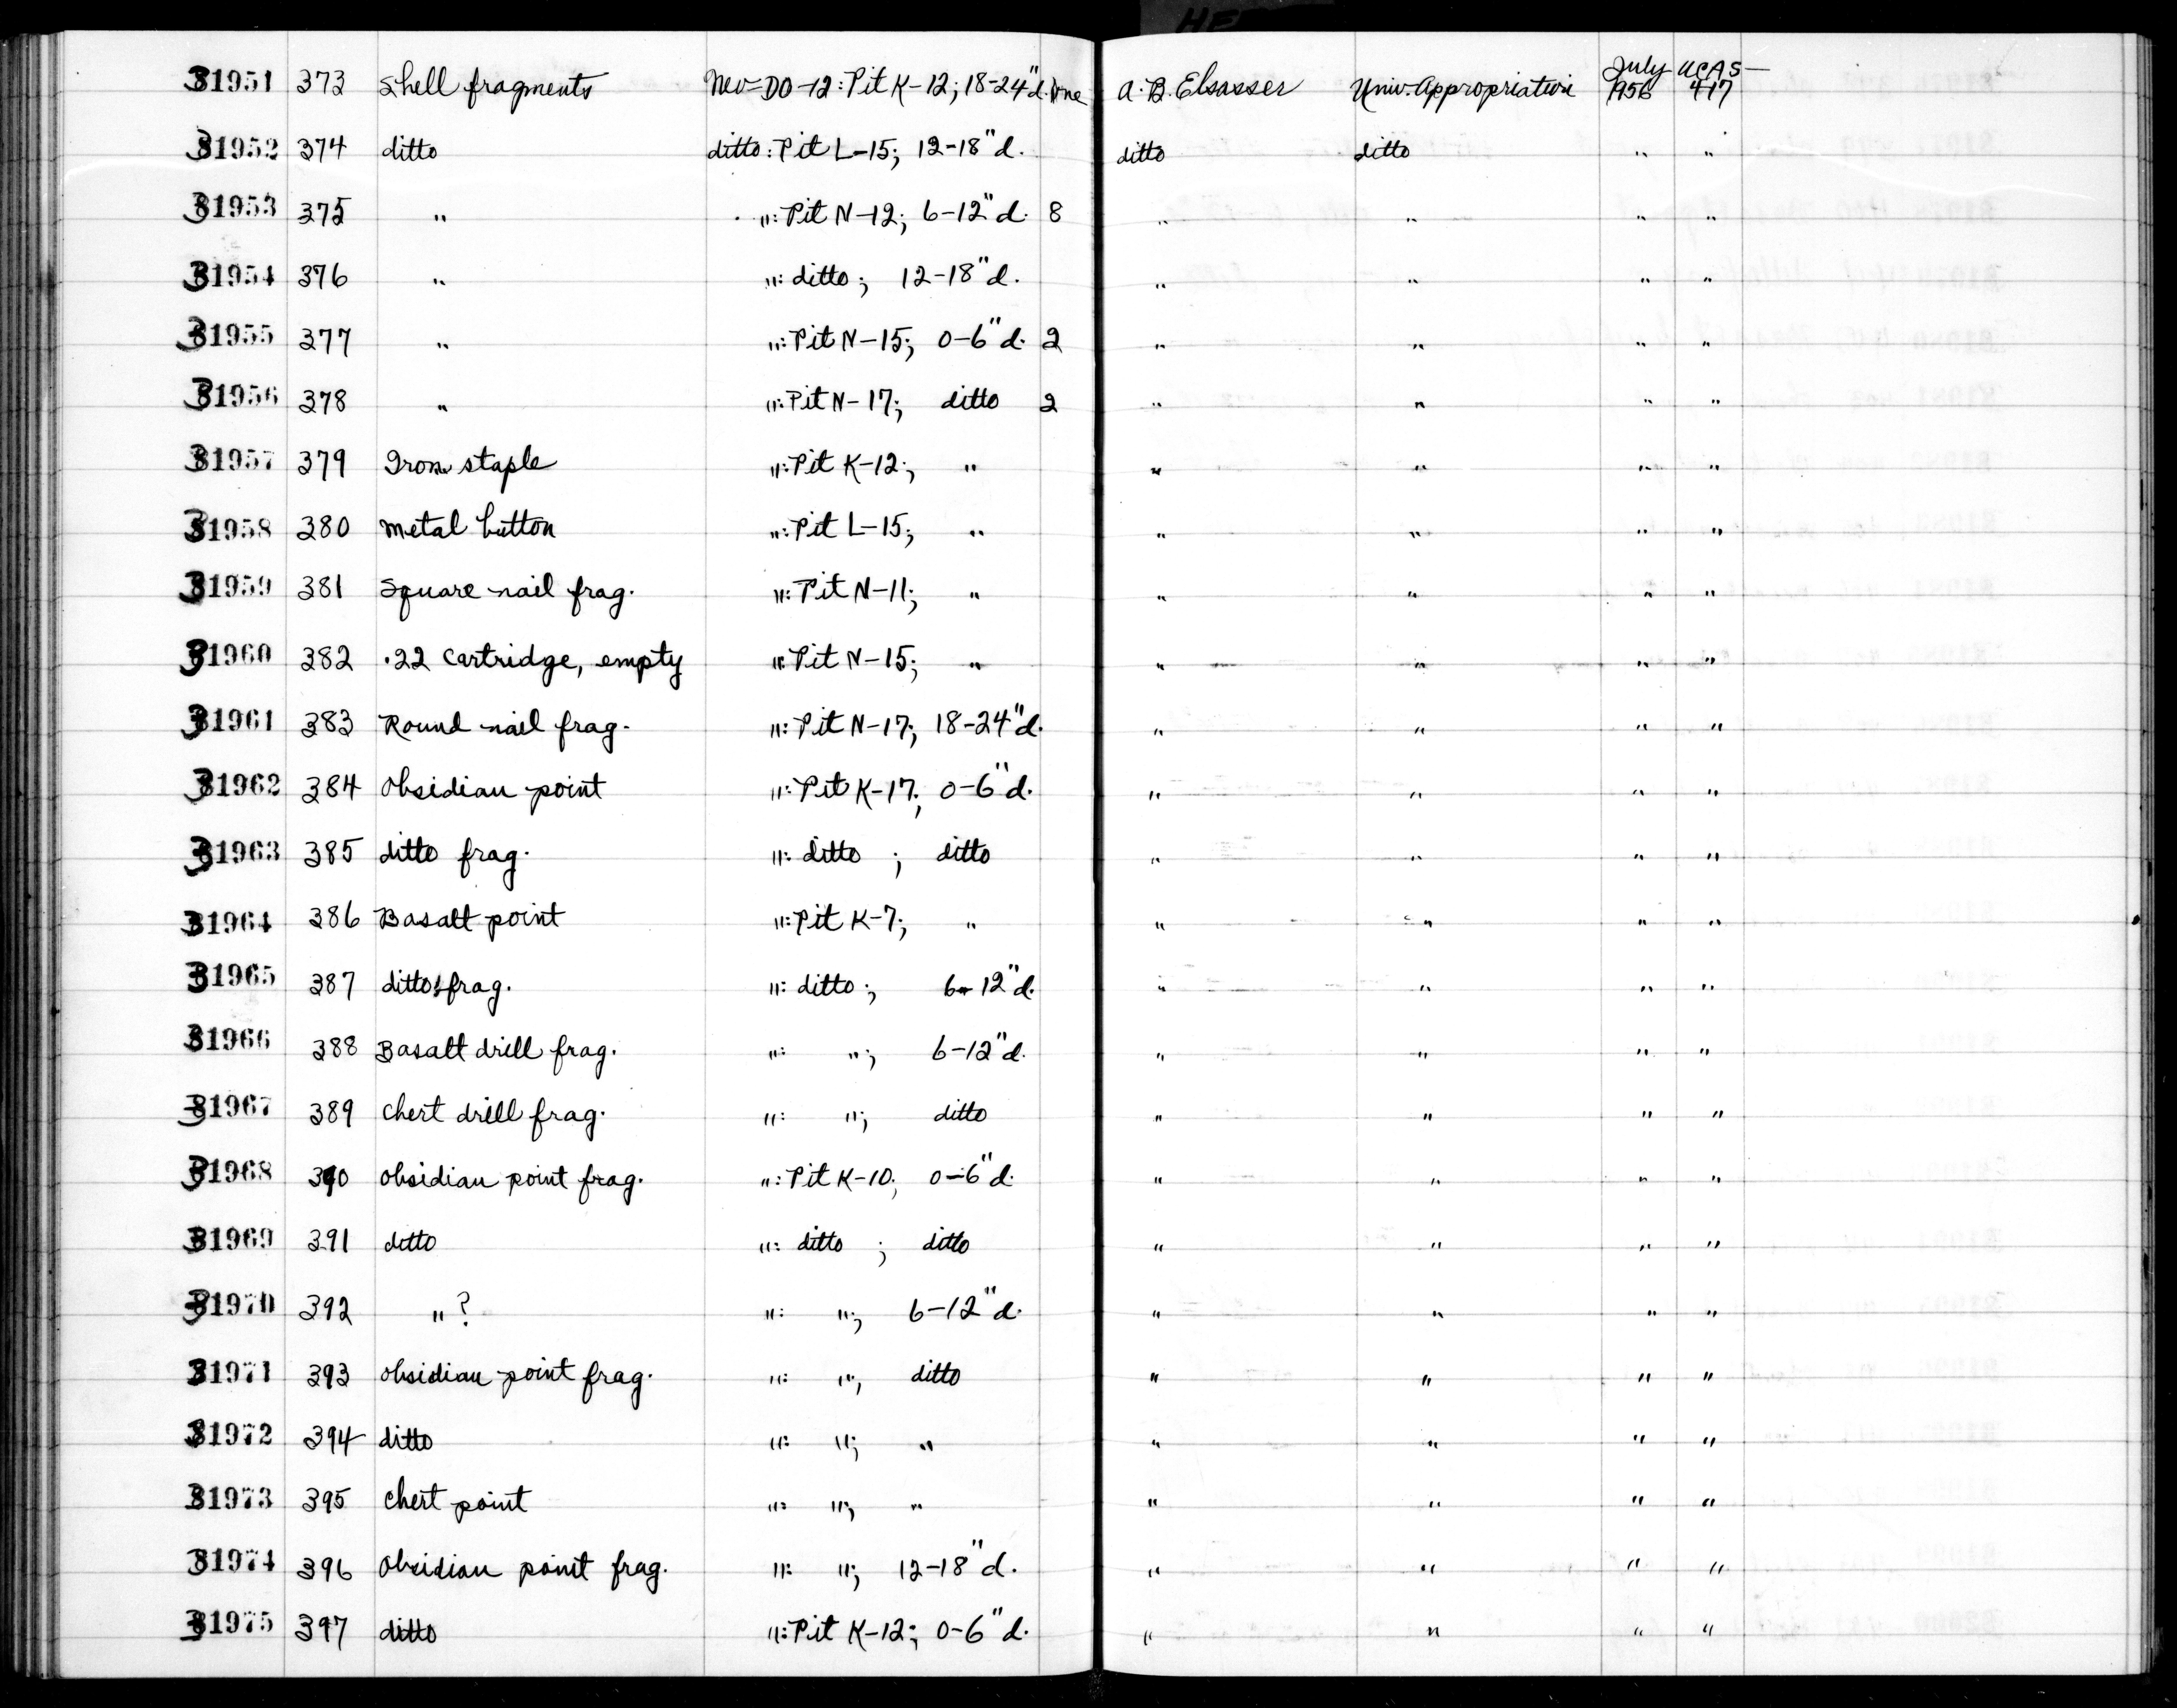 HE
31951 373 Shell fragments Nev-DO-12: Pit K-12; 18-24"d. A.B. Elsasser Univ. Appropriation July 1956 UCAS-417
31952 374 ditto ditto: Pit L-15; 12-18"d. ditto ditto " "
31953 375 " ": Pit N-12; 6-12"d. 8 " " " "
31954 376 " ": ditto; 12-18"d. " " " "
31955 377 " ": Pit N-15; 0-6"d. 2 " " " "
31956 378 " ": Pit N-17; ditto 2 " " " "
31957 379 Iron staple ": Pit K-12; " " " " "
31958 380 Metal button ": Pit L-15; " " " " "
31959 381 Square nail frag. ": Pit N-11; " " " " "
31960 382 .22 Cartridge, empty ": Pit N-15; " " " " "
31961 383 Round nail frag. ": Pit N-17; 18-24"d. " " " "
31962 384 Obsidian point ": Pit K-17; 0-6"d. " " " "
31963 385 ditto frag. ": ditto; ditto " " " "
31964 386 Basalt point ": Pit K-7; " " " " "
31965 387 ditto frag. ": ditto; 6-12"d. " " " "
31966 388 Basalt drill frag. ": "; 6-12"d. " " " "
31967 389 Chert drill frag. ": "; ditto " " " "
31968 390 Obsidian point frag. ": Pit K-10; 0-6"d. " " " "
31969 391 ditto ": ditto; ditto " " " "
31970 392 " ? ": "; 6-12"d. " " " "
31971 393 Obsidian point frag. ": "; ditto " " " "
31972 394 ditto ": "; " " " " "
31973 395 Chert point ": "; " " " " "
31974 396 Obsidian point frag. ": "; 12-18"d. " " " "
31975 397 ditto ": Pit K-12; 0-6"d. " " " "